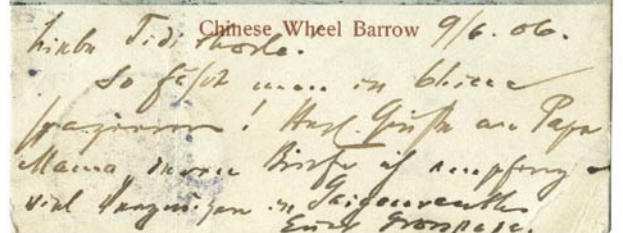 Chinese Wheel Barrow 9/6. 06.
Liebe
So fährt man in China
spazieren! Herzl. Grüße an Papa
Mama, deren Briefe ich empfing
viel Vergnügen in
Euer Grosspapa.